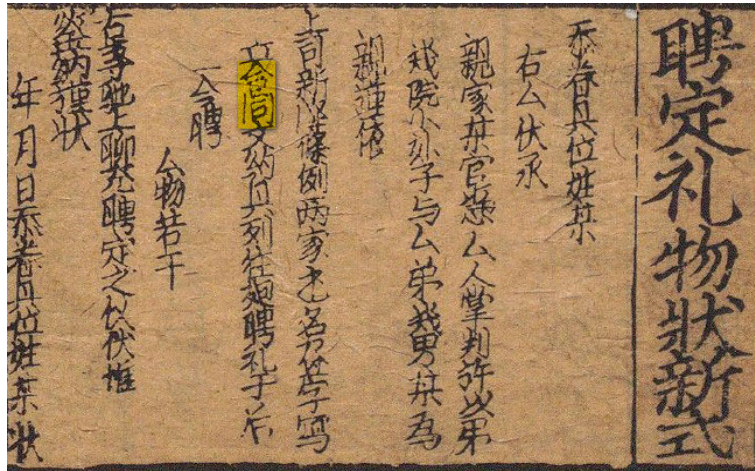 聘定礼物狀新式
忝眷具位姓某
右厶伏承
親家某官以厶人掌判許以弟
幾院小娘子与厶弟幾男某為
親謹依
上司新降條例兩家主名子寫
立合同交納具列往廻聘礼于后
一合聘
厶物若干
右專馳上聊充聘定之仪伏惟
笑納謹狀
年月日忝眷具位姓某狀